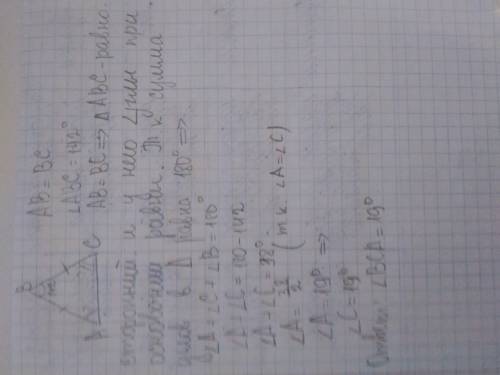 B
A
C
AB = BC
∠ABC = 142°
AB = BC => △ABC - равно-
сторонний и у него ∠углы при
основании равны. Т к сумма
углов в △ равна 180° =>
∠A + ∠C + ∠B = 180°
∠A + ∠C = 180 - 142
∠A + ∠C = 38°
∠A = 38/2 (т к. ∠A = ∠C)
∠A = 19° =>
∠C = 19°
Ответ: ∠BCA = 19°